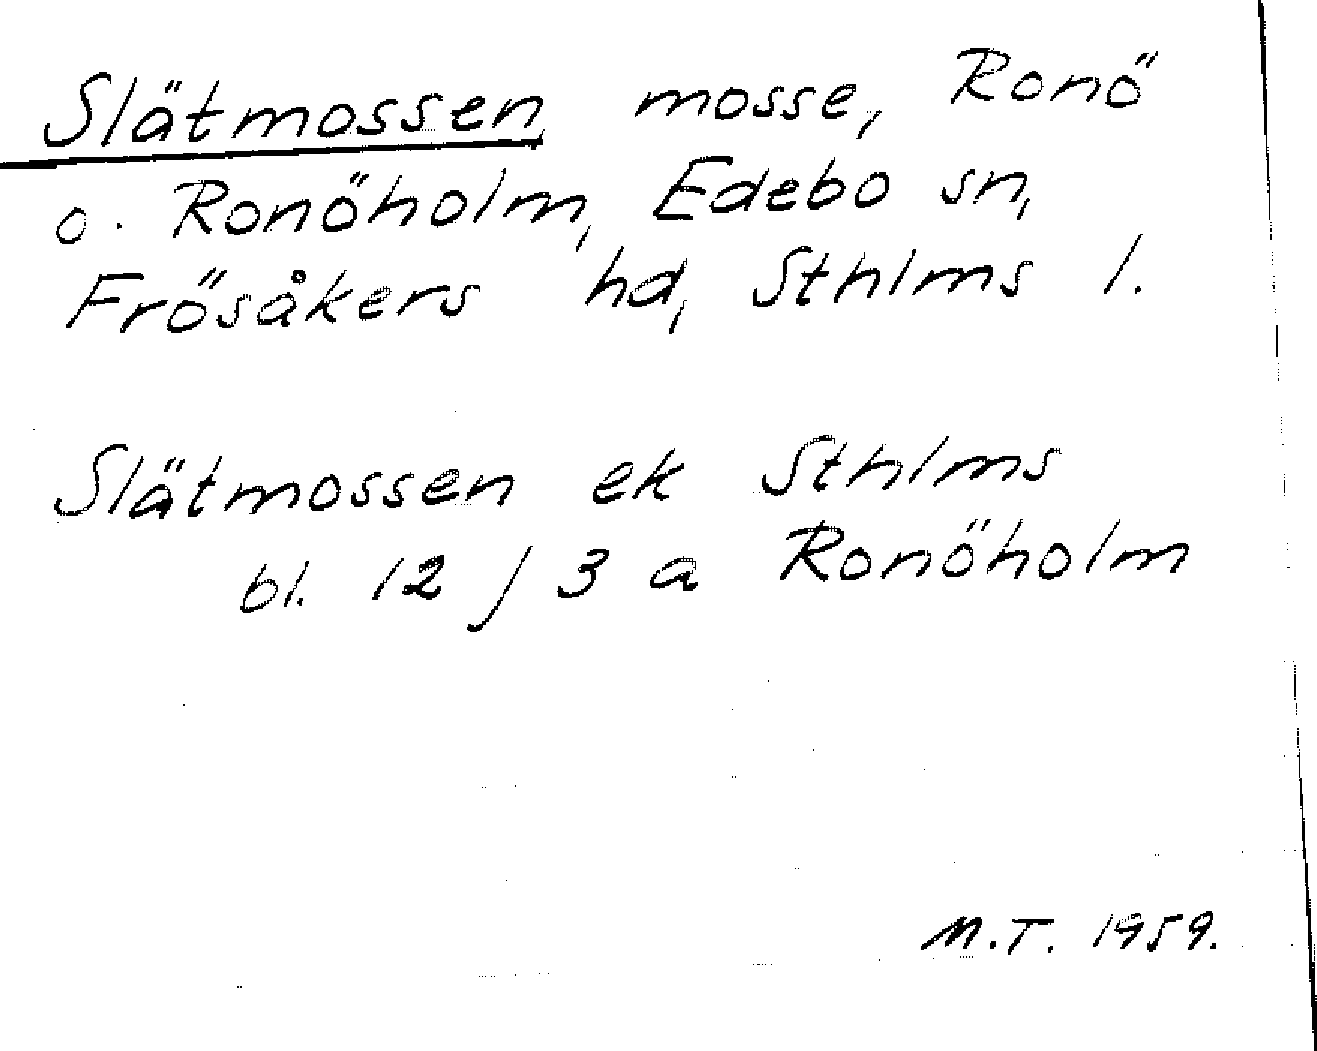 Slätmossen, mosse, Ronö
o. Ronöholm, Edebo sn,
Frösåkers hd, Sthlms l.
Slätmossen ek Sthlms
bl. 12 / 3 a Ronöholm
M.T. 1959.